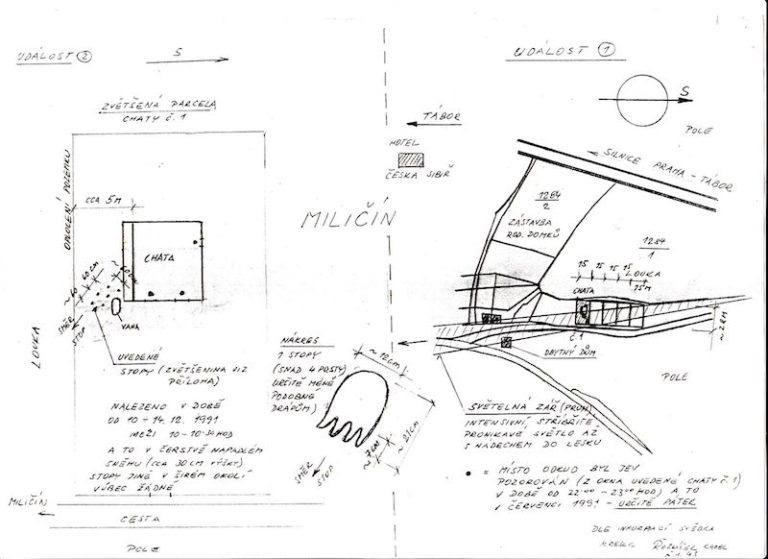 UDÁLOST ②
S
ZVĚTŠENÁ PARCELA
CHATY Č. 1
CCA 5M
CHATA
~60
60 CM
SMĚR
STOP
VANA
LOUKA
UVEDENÉ
STOPY (ZVĚTŠENINA VIZ
PŘÍLOHA)
NALEZENO V DOBĚ
OD 10 - 14. 12. 1991
MEZI 10 - 10:30 HOD
A TO V ČERSTVĚ NAPADLÉM
SNĚHU (CCA 30 CM VÝŠKY)
STOPY JINÉ V ŠIRÉM OKOLÍ
VŮBEC ŽÁDNÉ
MILIČÍN
CESTA
POLE
TÁBOR
HOTEL
ČESKÁ SIBIŘ
MILIČÍN
NÁKRES
1 STOPY
(SNAD 4 PRSTY)
URČITĚ MÉNĚ
PODOBNÉ
DRÁPŮM)
~12CM
~21CM
~7CM
SMĚR
STOP
UDÁLOST ①
S
POLE
SILNICE PRAHA - TÁBOR
1284
2
ZÁSTAVBA
ROD. DOMKŮ
1284
1
15 15 15 15
LOUKA
75M
CHATA
Č.1
OBYTNÝ DŮM
POLE
SVĚTELNÁ ZÁŘ (PRUH)
INTENSIVNÍ, STŘÍBŘITÉ,
PRONIKAVÉ SVĚTLO AŽ
S NÁDECHEM DO LESKU
• = MÍSTO ODKUD BYL JEV
POZOROVÁN (Z OKNA UVEDENÉ CHATY Č. 1)
V DOBĚ OD 22°°° - 23°° HOD) A TO
V ČERVENCI 1991 - URČITĚ PÁTEK
DLE INFORMACÍ SVĚDKA
KRESLIL
KAREL